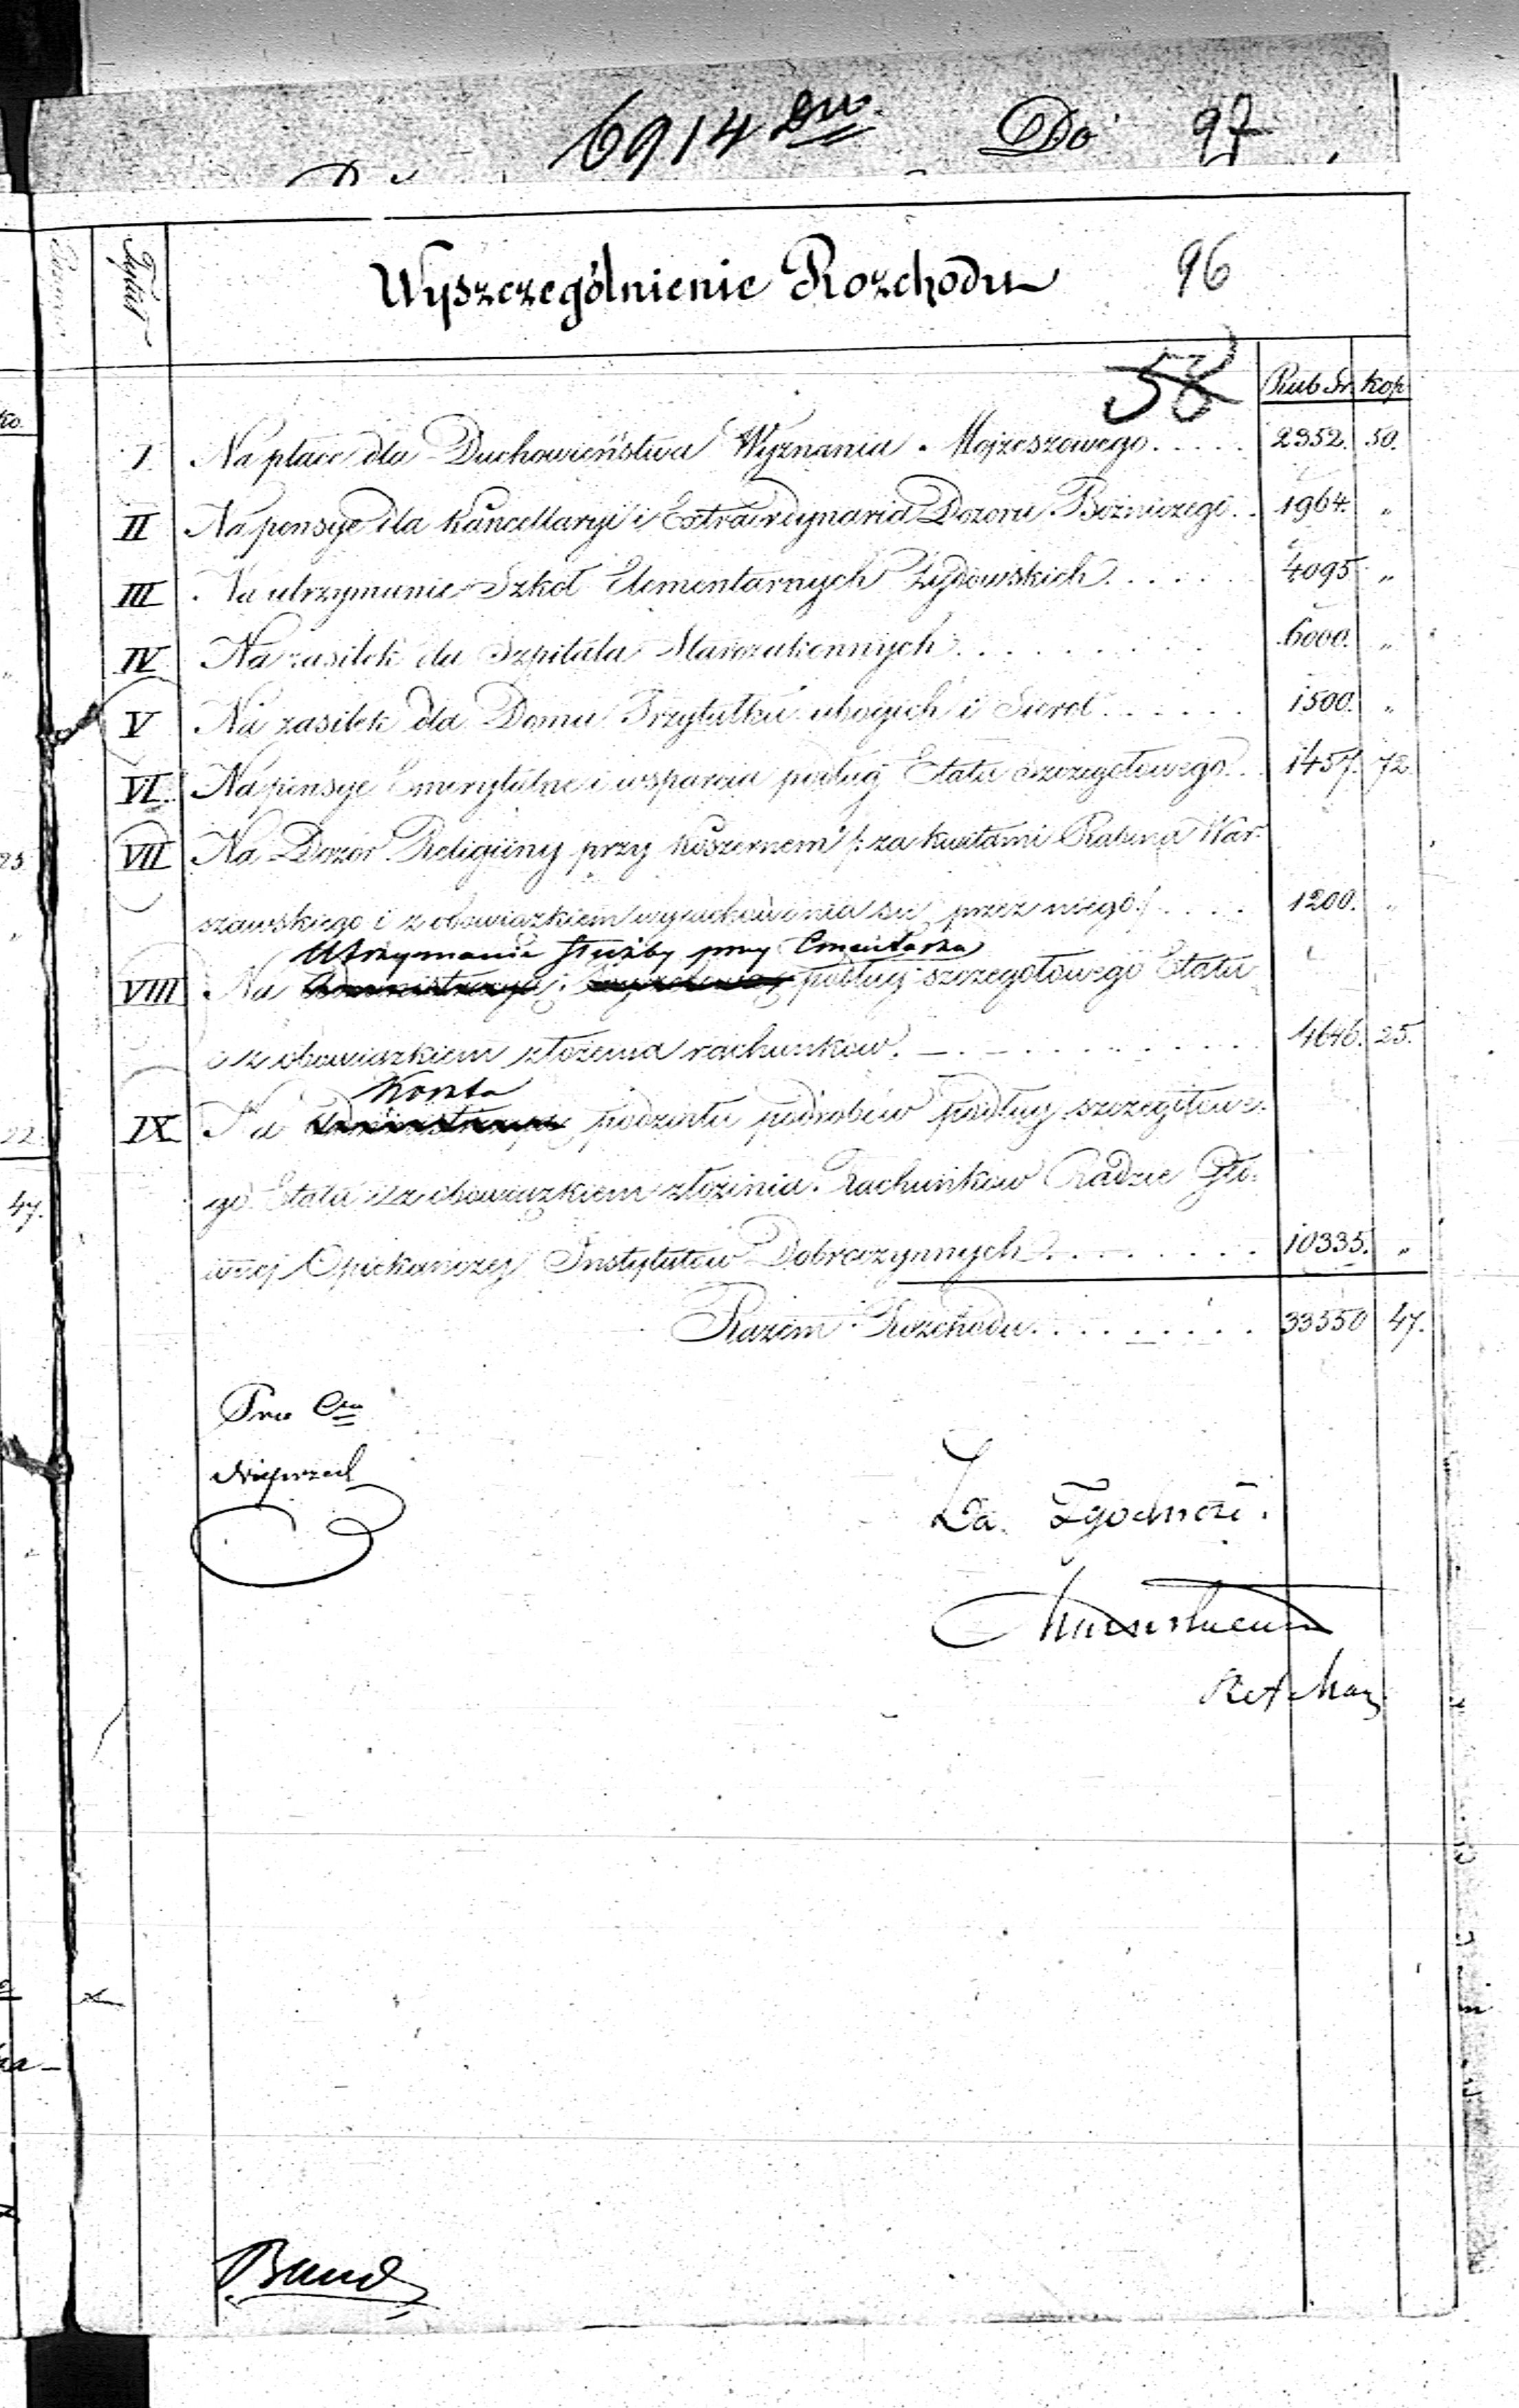 6914 Dw. Do 97
Tytuł
Wyszczególnienie Rozchodu 96
58
Rub Sr. kop
I Na płace dla Duchowieństwa Wyznania Mojżeszowego..... 2352. 50.
II Na pensye dla Kancellaryi i Extraordynaria Dozoru Bożniczego.. 1964. „
III Na utrzymanie Szkół Elementarnych Żydowskich...... 4095 „
IV Na zasiłek dla Szpitala Starozakonnych......... 6000. „
V Na zasiłek dla Domu Przytułku ubogich i Sierot...... 1500. „
VI Na pensye Emerytalne i wsparcia podług Etatu szczegółowego.. 1457. 72.
VII Na Dozór Religijny przy koszernem /: za kwitami Rabina War-
szawskiego i z obowiązkiem przez niego :/.... 1200. „
Utrzymanie służby przy Cmentarzu
VIII Na podług szczegółowego Etatu
z obowiązkiem złożenia rachunków. 4646. 25.
Koszta
IX Na podziału podrobów podług szczegółowe-
go Etatu i z obowiązkiem złożenia Rachunków Radzie Głó-
wnej Opiekuńczej Instytutów Dobroczynnych........ 10335. „
Razem Rozchodu......... 33550 47.
Za Zgodność.